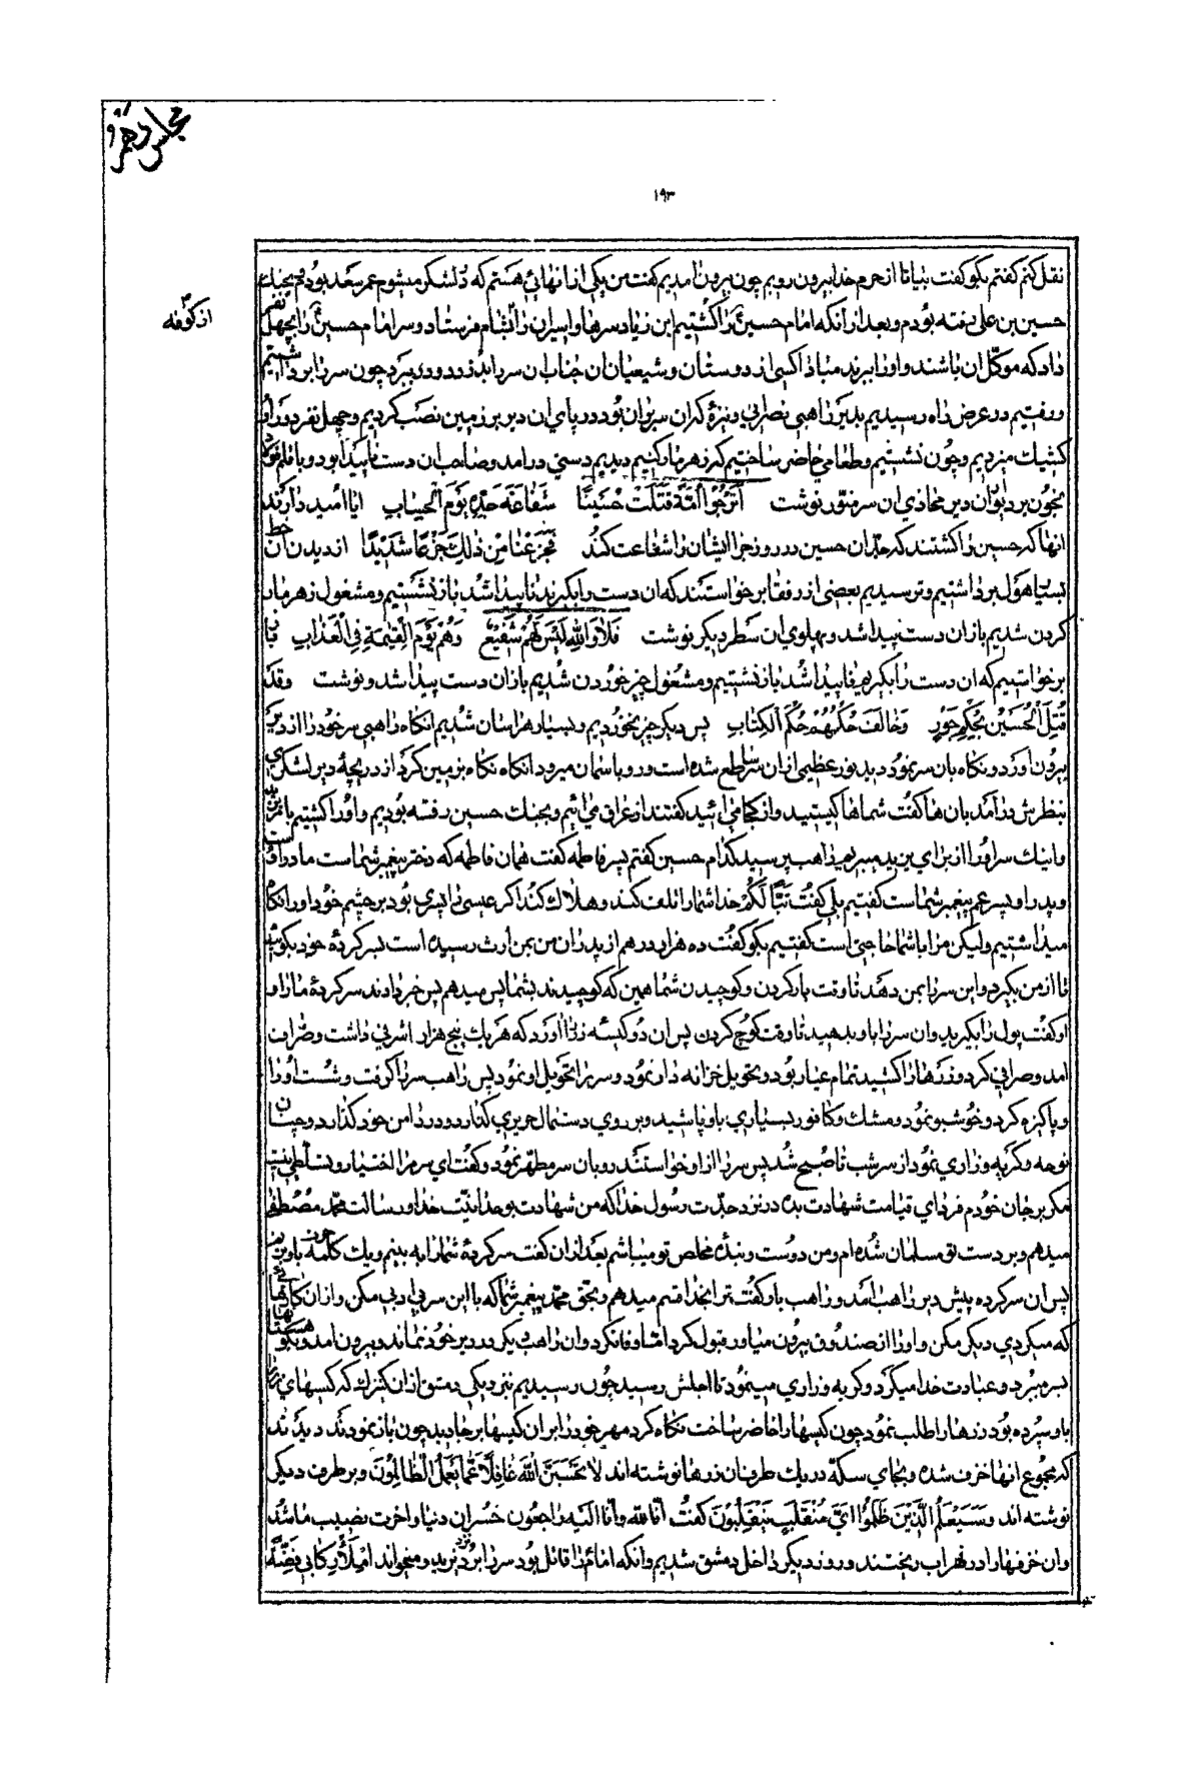 مجلس دهم
۱۹۳
نقل کنم کفتم بکو کفت بیا تا از حرم خدا بیرون رویم چون بیرون امدیم کفت من یکی از انهائی هستم که در لشکر میشوم عمر سعد بودم و بجنك
از کوفه
حسین بن علی رفته بودم و بعد از انکه امام حسین را کشتیم ابن زیاد سرها و اسیران را بشام فرستاد و سر امام حسین را بچهل نفر
داد که موکل ان باشند و او را ببرند مبادا کسی از دوستان و شیعیان ان جناب ان سر را بدزدد و ببرد چون سر را برداشتیم
و رفتیم در عرض راه رسیدیم بدیر راهبی نصرانی و نیزه که ان سر بران بود در پای ان دیر بر زمین نصب کردیم و چهل نفر دور او
کشیك میزدیم و چون نشستیم و طعامی حاضر ساختیم که زهرمار کنیم دیدیم دستی در امد و صاحب ان دست ناپیدا بود و با قلم فولاد
بخون بر دیوان دیر محاذی ان سر منور نوشت اَتَرْجُوا اُمَّةٌ قَتَلَتْ حُسَیْنًا شَفاعَةَ جَدِّهِ یَوْمَ الْحِسابِ ایا امید دارند
انها که حسین را کشتند که جد ان حسین در روز جزا ایشان را شفاعت کند فَجَزَعْنا مِنْ ذٰلِكَ جَزَعًا شَدیدًا از دیدن ان خط
بسیار هول برداشتیم و ترسیدیم بعضی از رفقا برخواستند که ان دست را بکیرند ناپیدا شد باز نشستیم و مشغول زهرمار
کردن شدیم باز ان دست پیدا شد و پهلوی ان سطر دیکر نوشت فَلا وَاللهِ لَیْسَ لَهُمْ شَفیعٌ وَهُمْ یَوْمَ الْقِیٰمَةِ فِی الْعَذابِ باز
برخواستیم که ان دست را بکیریم ناپیدا شد باز نشستیم و مشغول چیز خوردن شدیم باز ان دست پیدا شد و نوشت وقَدْ
قُتِلَ الْحُسَیْنُ بِحُکْمِ جَوْرٍ وَخالَفَ حُکْمُهُمْ حُکْمَ الْکِتابِ پس دیکر چیز نخوردیم و بسیار هراسان شدیم انکاه راهبی سر خود را از دیر
بیرون اورد و نکاه بان سر نمود دید نور عظیمی از ان سر ساطع شده است و رو باسمان میرود انکاه نکاه بزمین کرد از دریچه دیر لشکری
بنظرش درامد بان ها کفت شماها کیستید و از کجا می ائید کفتند از عراق می ائیم و بجنك حسین رفته بودیم و او را کشتیم
و اینك سر او را از برای یزید میبریم راهب پرسید کدام حسین کفتم پسر فاطمه کفت همان فاطمه که دختر پیغمبر شما است مادر او است
و پدر او پسر عم پیغمبر شما است کفتیم بلی کفت تَبًّا لَکُمْ خدا شما را تلف کند و هلاك کند اکر عیسی را پسری بود بر چشم خود او را نکاه
میداشتیم ولیکن مرا با شما حاجتی است کفتیم بکو کفت ده هزار درهم از پدران من بمن ارث رسیده است بسر کرده خود بکوئید
تا از من بکیرد و این سر را بمن دهد تا وقت بار کردن و کوچیدن شما همین که کوچیدند بشما پس میدهم پس خبر دادند سر کرده ما را و
او کفت پول را بکیرید و ان سر را باو بدهید تا وقت کوچ کردن پس ان دو کیسه زر اورد که هر یك پنج هزار اشرفی داشت و صراف
امد و صرافی کرد و زرها را کشید تمام عیار بود و تحویل خزانه دار نمود و سر را تحویل او نمود پس راهب سر را کرفت و شست او را
و پاکیزه کرد و خوشبو نمود و مشك و کافور بسیاری باو پاشید و بر روی دستمال حریری کذارد و در دامن خود کذارد و چنان
نوحه و کریه و زاری نمود از سر شب تا صبح شد پس سر را از او خواستند رو بان سر مطهر نمود و کفت ای سر مرا اختیار و تسلطی نیست
مکر بر جان خودم فردای قیامت شهادت بده در نزد جدت رسول خدا که من شهادت بوحدانیت خدا و رسالت محمد مصطفی
میدهم و بر دست تو مسلمان شده ام و من دوست و بنده مخلص تو میباشم بعد از ان کفت سر کرده شما را به بینم و یك کلمه حرف باو بزنم
پس ان سر کرده پیش دیر راهب امد و راهب باو کفت ترا بخدا قسم میدهم و بحق محمد پیغمبر شما که با این سر بی ادبی مکن و از ان کارها
که میکردی دیکر مکن و او را از صندوق بیرون میاور قبول کرد اما وفا نکرد و ان راهب دیکر در دیر خود نماند و بیرون امد و بکوهستانها
بسر میبرد و عبادت خدا میکرد و کریه و زاری مینمود تا اجلش رسید چون رسیدیم بنزدیکی دمشق از ان کنزانه که کیسهای زر را
باو سپرده بود زرها را طلب نمود چون کیسها را حاضر ساخت نکاه کرد مهر خود را بر ان کیسها برجا دید چون باز نمودند دیدند
که مجموع انها خزف شده و بجای سکه در یك طرف ان زرها نوشته اند لا تَحْسَبَنَّ اللهَ غافِلًا عَمّا یَعْمَلُ الظّالِمُونَ و بر طرف دیکر
نوشته اند وَسَیَعْلَمُ الَّذینَ ظَلَمُوا اَیَّ مُنْقَلَبٍ یَنْقَلِبُونَ کفت انا لله وانا الیه راجعون خسران دنیا و اخرت نصیب ما شد
و ان خزفها را در نهر اب ریختند و روز دیکر داخل دمشق شدیم و انکه امام را قاتل بود سر را برد نزد یزید و میخواند اِمْلَأْ رِکابی فِضَّةً